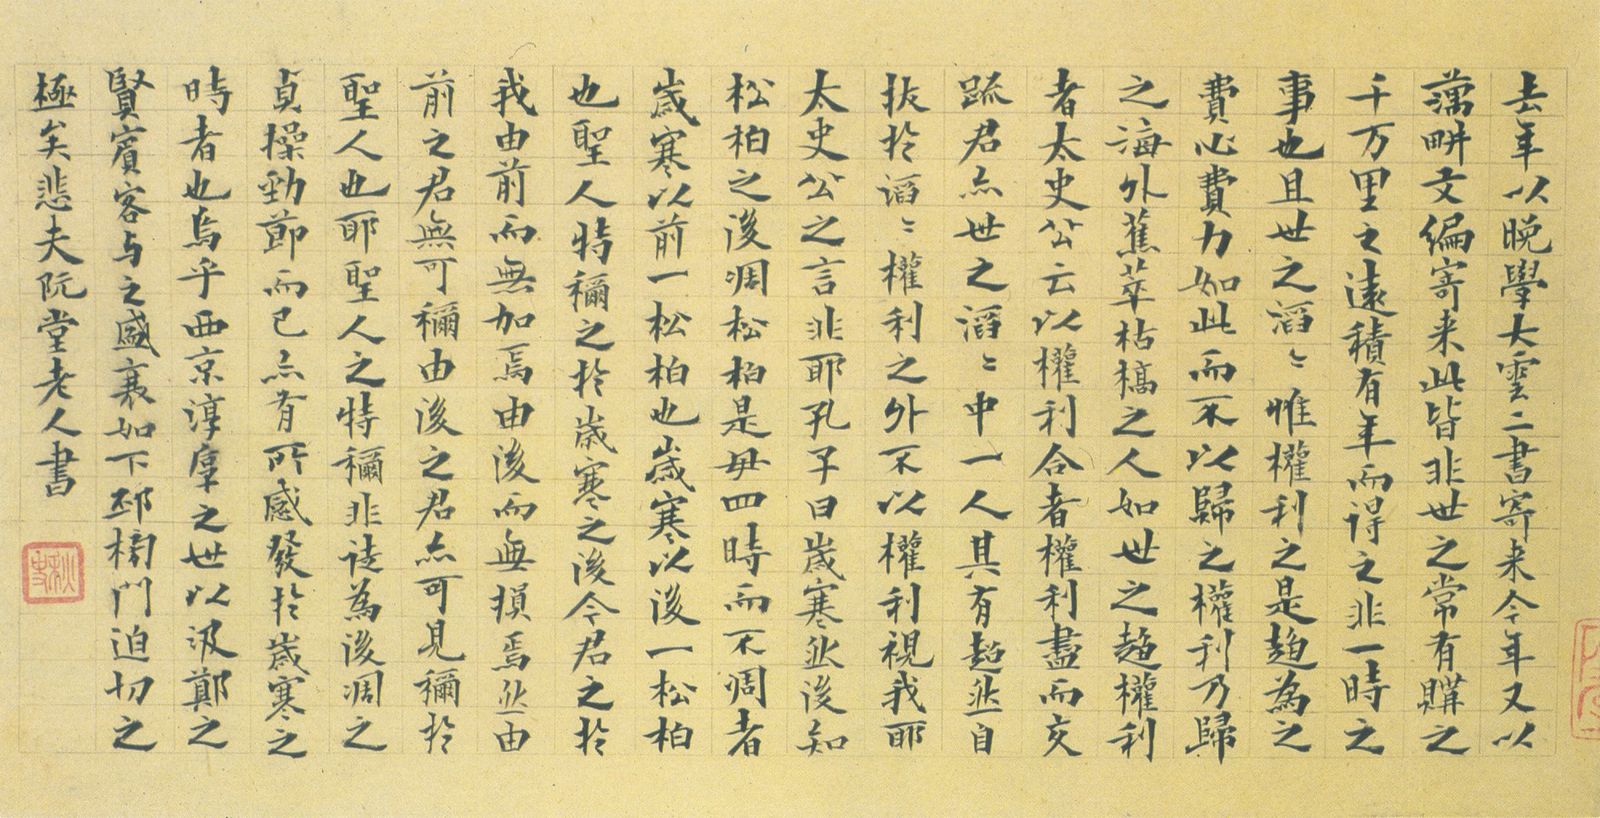 去年以晚學大雲二書寄来今年又以
藕畊文編寄来此皆非世之常有購之
千万里之遠積有年而得之非一時之
事也且世之滔〻惟權利之是趨為之
費心費力如此而不以歸之權利乃歸
之海外蕉萃枯槁之人如世之趨權利
者太史公云以權利合者權利盡而交
踈君亦世之滔〻中一人其有超然自
拔於滔〻權利之外不以權利視我耶
太史公之言非耶孔子曰歲寒然後知
松柏之後凋松柏是毋四時而不凋者
歲寒以前一松柏也歲寒以後一松柏
也聖人特穪之於歲寒之後今君之於
我由前而無加焉由後而無損焉然由
前之君無可穪由後之君亦可見穪於
聖人也耶聖人之特穪非徒為後凋之
貞操勁節而已亦有所感發於歲寒之
時者也烏乎西京淳厚之世以汲鄭之
賢賓客与之盛衰如下邳榜門迫切之
極矣悲夫阮堂老人書
秋史